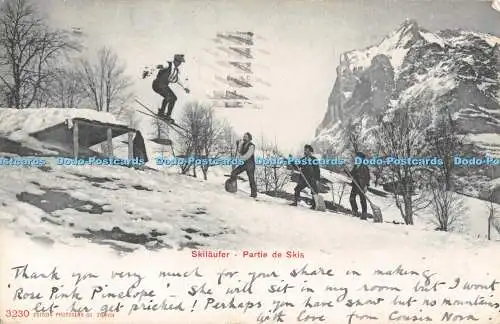 Dodo-Postcards.com Dodo-Postcards.com Dodo-Postcards.com
Skiläufer - Partie de Skis
Thank you very much for your share in making
'Rose Pink Pinelope' - She will sit in my room but I wont
let her get pricked! Perhaps you have snow but no mountains
3230 EDITION PHOTOGLOB CO. ZÜRICH
with love from Cousin Nora.